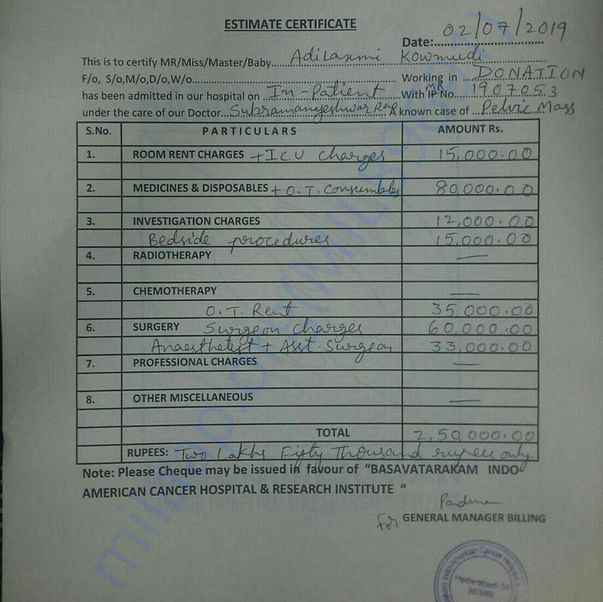 ESTIMATE CERTIFICATE
02/07/2019
Date:
This is to certify MR/Miss/Master/Baby AdiLaxmi Kowmudi
F/o, S/o,M/o,D/o,W/o Working in DONATION
has been admitted in our hospital on In-Patient With IP No MR 1907053
under the care of our Doctor Subramanyeshwar Rao A known case of Pelvic Mass
S.No. PARTICULARS AMOUNT Rs.
1. ROOM RENT CHARGES + ICU charges 15,000.00
2. MEDICINES & DISPOSABLES + O.T. Consumbles 80,000.00
3. INVESTIGATION CHARGES 12,000.00
Bedside procedures 15,000.00
4. RADIOTHERAPY —
5. CHEMOTHERAPY —
O.T. Rent 35,000.00
6. SURGERY Surgeon charges 60,000.00
Anaesthetist + Asst. Surgeon 33,000.00
7. PROFESSIONAL CHARGES —
8. OTHER MISCELLANEOUS —
TOTAL 2,50,000.00
RUPEES: Two Lakhs Fifty Thousand rupees only
Note: Please Cheque may be issued in favour of "BASAVATARAKAM INDO
AMERICAN CANCER HOSPITAL & RESEARCH INSTITUTE "
For GENERAL MANAGER BILLING